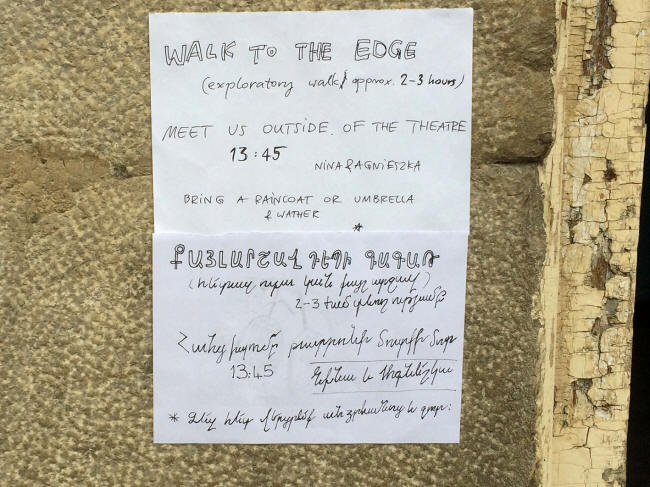 WALK TO THE EDGE
(exploratory walk, approx. 2-3 hours)
MEET US OUTSIDE OF THE THEATRE
13:45
NINA & AGNIESZKA
BRING A RAINCOAT OR UMBRELLA
& WATHER
*
ՔԱՅԼԱՐՇԱՎ ԴԵՊԻ ԳԱԳԱԹ
2-3 ժամ
թատրոնի մուտքի մոտ
13:45
Նինա և Ագնեշկա
* Ձեզ հետ վերցրեք անձրևանոց և ջուր: